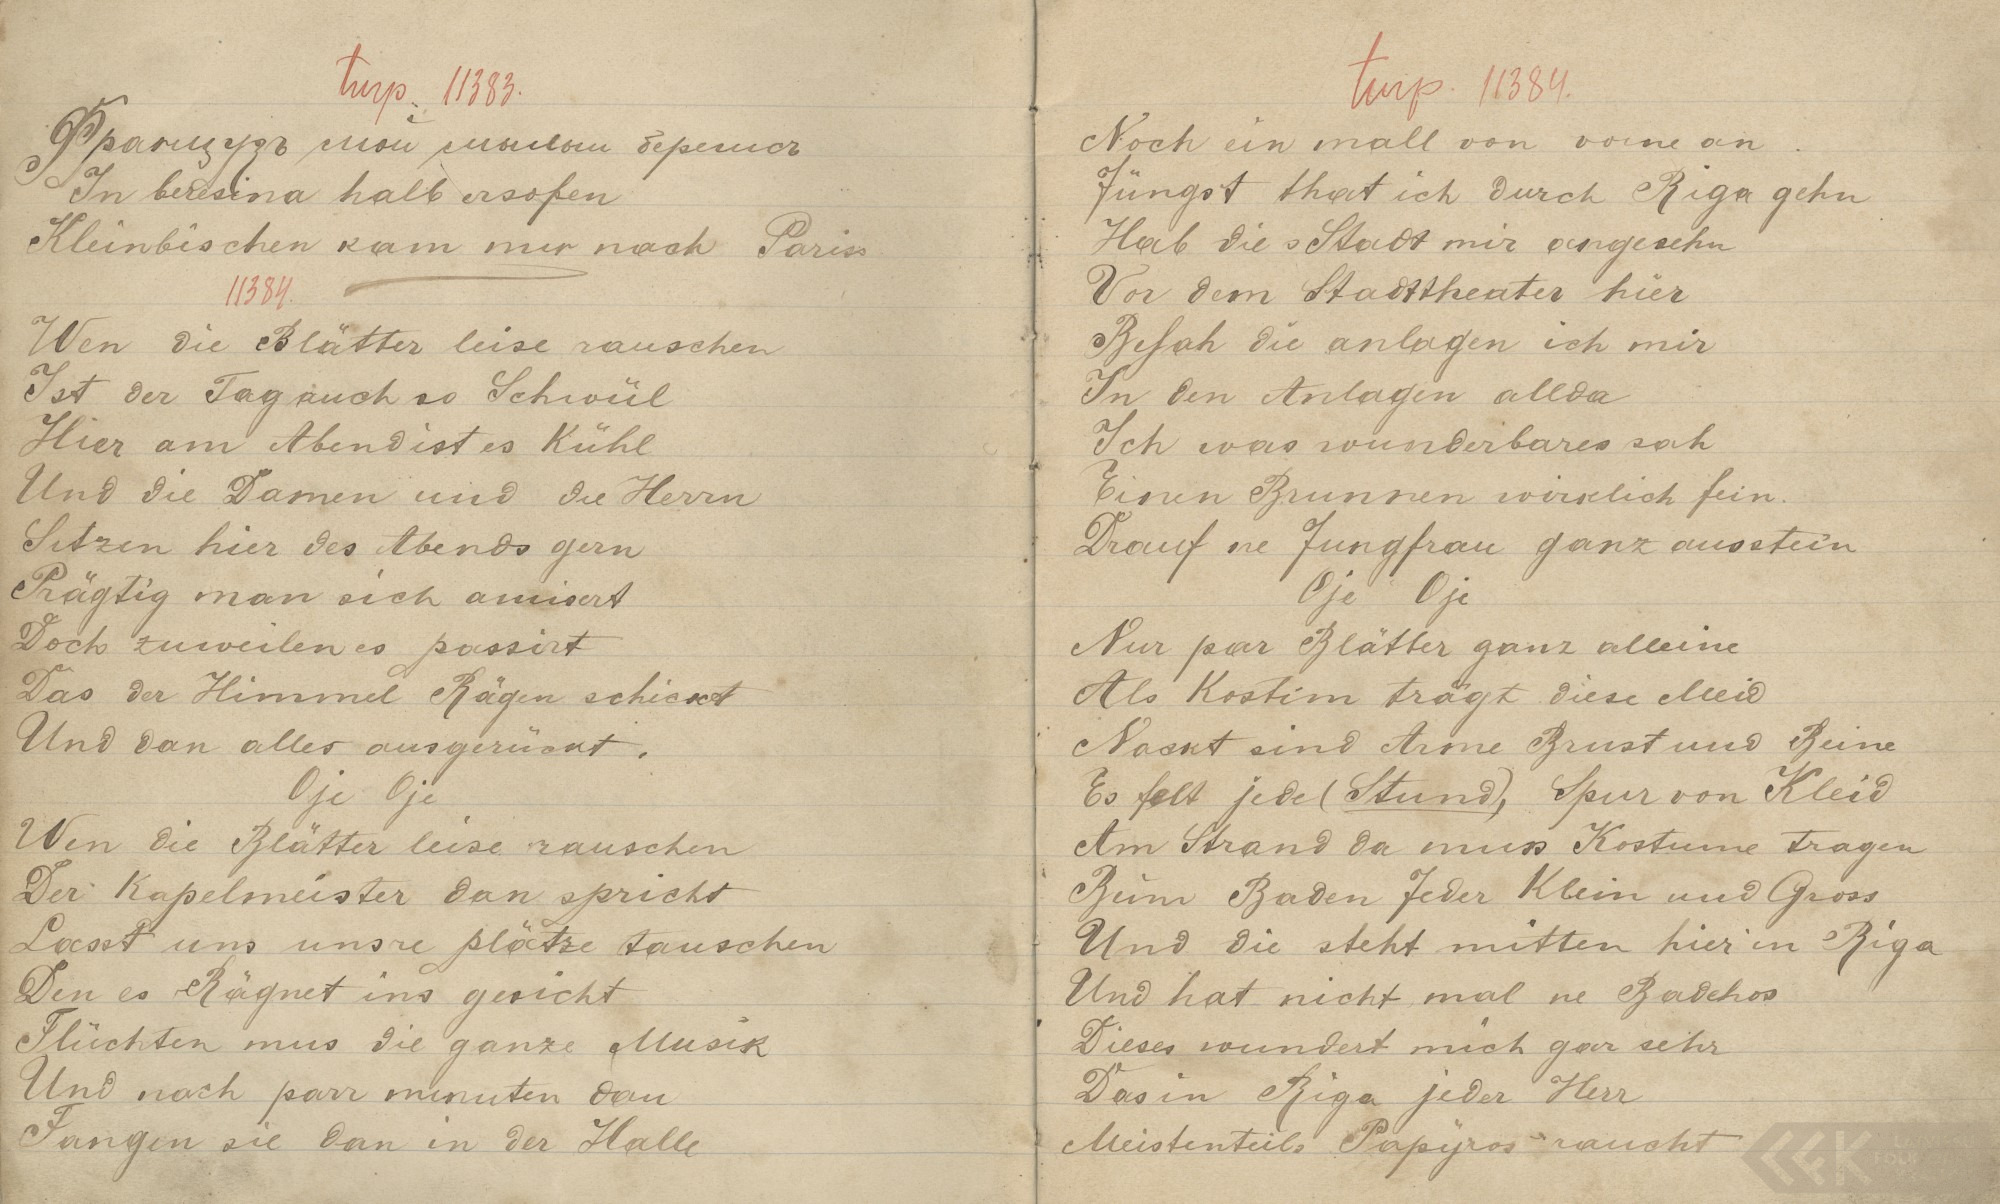 turp. 11383.
Французъ мой милый
In beresina halb ersofen
Kleinbischen kam nur nach Pariss
11384.
Wen die Blätter leise rauschen
Ist der Tag auch so Schwül
Hier am Abend ist es Kühl
Und die Damen und die Herrn
Sitzen hier des Abends gern
Prägtig man sich amisert
Doch zuweilen es passirt
Das der Himmel Rägen schickt
Und dan alles ausgerückt.
Oje Oje
Wen die Blätter leise rauschen
Der Kapelmeister dan spricht
Lasst uns unsre plätze tauschen
Den es Rägnet ins gesicht
Flüchten mus die ganze Musik
Und nach parr minuten dau
Fangen sie dan in der Halle
turp. 11384.
Noch ein mall von vorne an.
Jüngst that ich durch Riga gehn
Hab die Stadt mir angesehn
Vor dem Stadttheater hier
Besah die anlagen ich mir
In den Anlagen allda
Ich was wunderbares sah
Einen Brunnen wirklich fein.
Drauf ne Jungfrau ganz ausstein
Oje Oje
Nur par Blätter ganz alleine
Als Kostim trägt diese Meid
Nackt sind Arme Brust und Beine
Es felt jede (Stund), Spur von Kleid
Am Strand da muss Kostume tragen
Beim Baden Jeder Klein und Gross
Und die steht mitten hier in Riga
Und hat nicht mal ne Badehos
Dieses wundert mich gar sehr
Das in Riga jeder Herr
Meistenteils Papyros raucht